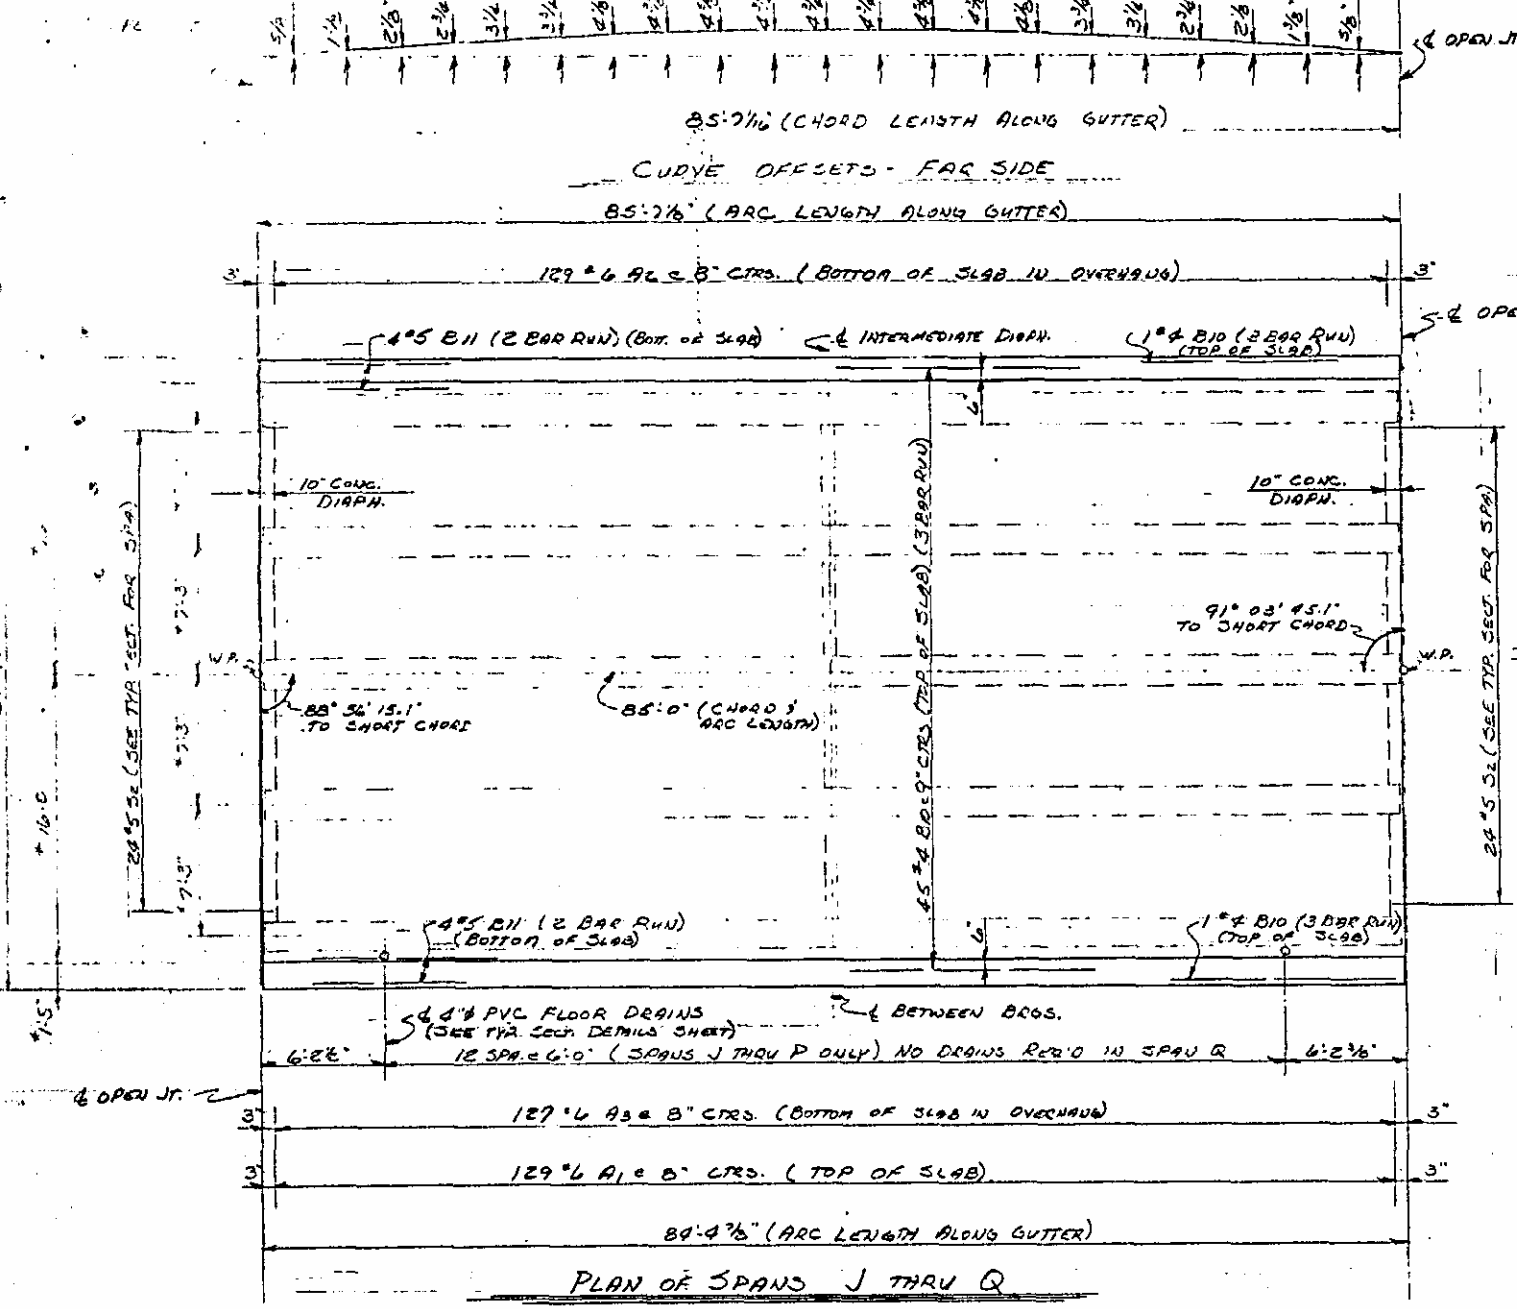 5/8"
1 1/8"
2 1/8"
2 3/4"
3 1/4"
3 3/4"
4 1/8"
3 3/4"
3 1/4"
2 3/4"
2 1/8"
1 3/8"
5/8"
℄ OPEN JT
85'-7 1/16" (CHORD LENGTH ALONG GUTTER)
CURVE OFFSETS - FAR SIDE
85'-7 1/8" (ARC LENGTH ALONG GUTTER)
3"
129 #6 A2 @ 8" CTRS. (BOTTOM OF SLAB IN OVERHANG)
3"
℄ OPE
4 #5 B11 (2 BAR RUN) (BOTT. OF SLAB)
℄ INTERMEDIATE DIAPH.
1 #4 B10 (3 BAR RUN)
(TOP OF SLAB)
6"
10" CONC.
DIAPH.
10" CONC.
DIAPH.
24 #5 S2 (SEE TYP. SECT. FOR SPA.)
45 #4 B10 @ 9" CTRS (TOP OF SLAB) (3 BAR RUN)
24 #5 S2 (SEE TYP. SECT. FOR SPA.)
* 7'-3"
* 7'-3"
* 7'-3"
* 16'-0
91° 03' 45.1"
TO SHORT CHORD
W.P.
W.P.
88° 56' 15.1"
TO SHORT CHORD
85'-0" (CHORD &
ARC LENGTH)
4 #5 B11 (2 BAR RUN)
(BOTTOM OF SLAB)
6"
1 #4 B10 (3 BAR RUN)
(TOP OF SLAB)
℄ 4"ø PVC FLOOR DRAINS
(SEE TYP. SECT. DETAILS SHEET)
℄ BETWEEN BRGS.
12 SPA. @ 6'-0" (SPANS J THRU P ONLY) NO DRAINS REQ'D IN SPAN Q
6'-2 3/8"
℄ OPEN JT.
3"
127 #6 A3 @ 8" CTRS. (BOTTOM OF SLAB IN OVERHANG)
3"
3"
129 #6 A1 @ 8" CTRS. (TOP OF SLAB)
3"
84'-4 7/8" (ARC LENGTH ALONG GUTTER)
PLAN OF SPANS J THRU Q